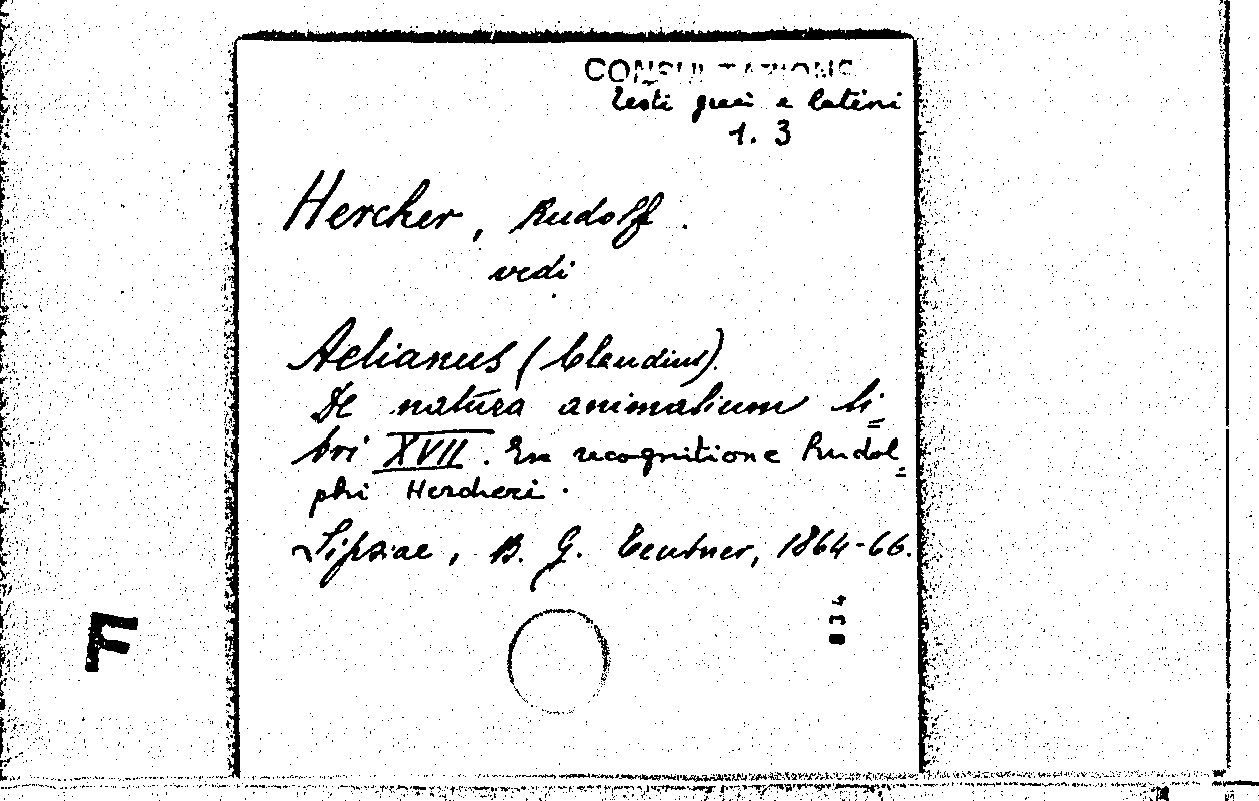 CONSULTAZIONE
Testi greci e latini
1. 3
Hercher, Rudolf.
vedi
Aelianus (Claudius).
De natura animalium li=
bri XVII. Ex recognitione Rudol=
phi Hercheri.
Lipsiae, B. G. Teubner, 1864-66.
834
F